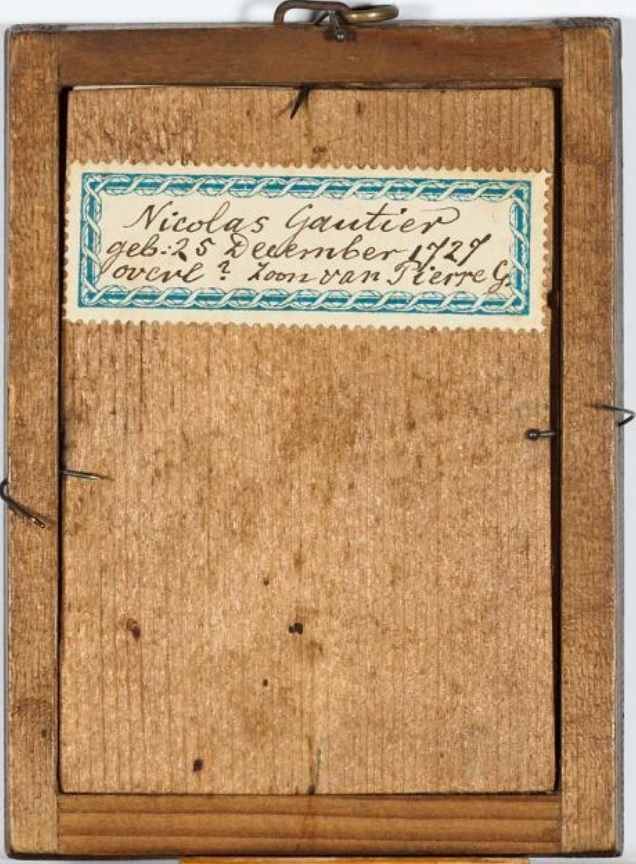 Nicolas Gautier
geb: 25 December 1727
overl ? Zoon van Pierre G.